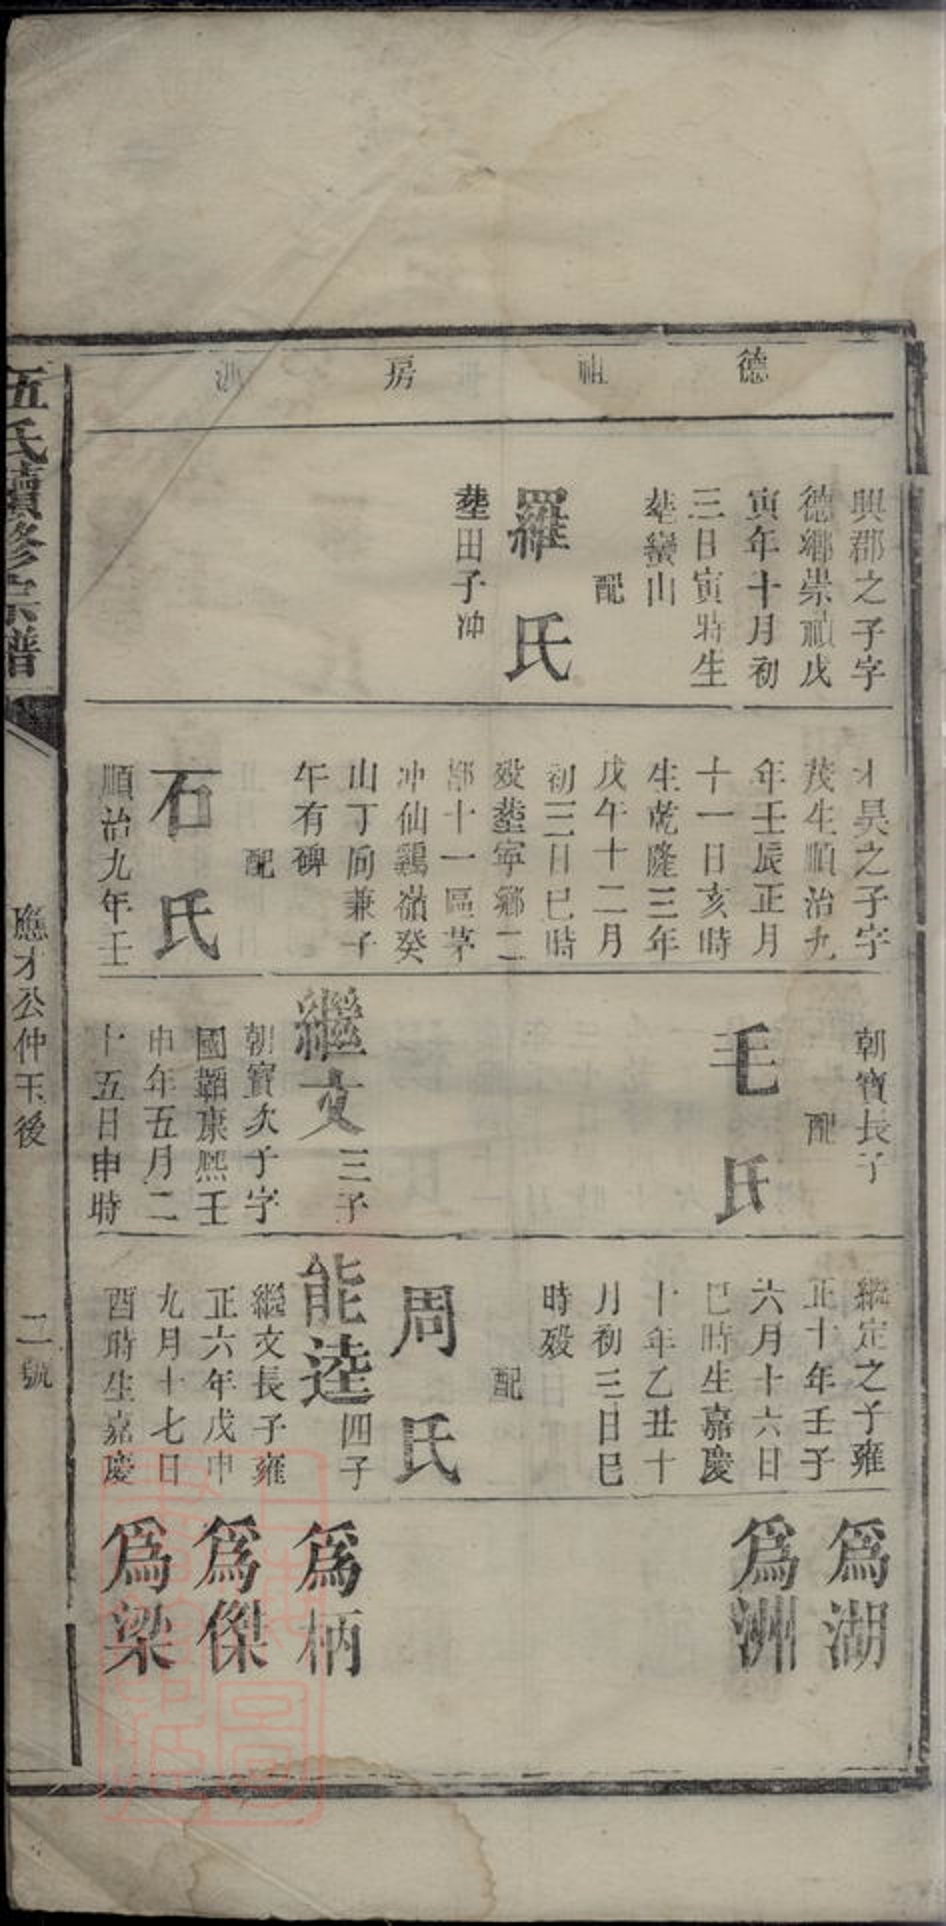 德祖房派
興郡之子字
德鄉崇禎戊
寅年十月初
三日寅時生
塟蠻山
配
羅氏
塟田子冲
才昊之子字
茂生順治九
年壬辰正月
十一日亥時
生乾隆三年
戊午十二月
初三日巳時
歿塟寧鄉二
都十一區茅
冲仙鷄嶺癸
山丁向兼子
午有碑
配
石氏
順治九年壬
朝寶長子
配
毛氏
繼文三子
朝寶次子字
國 康熙壬
申年五月二
十五日申時
繼定之子雍
正十年壬子
六月十六日
巳時生嘉慶
十年乙丑十
月初三日巳
時歿
配
周氏
能逵四子
繼文長子雍
正六年戊申
九月十七日
酉時生嘉慶
爲湖
爲洲
爲柄
爲傑
爲梁
伍氏續修宗譜
應才公仲玉後
二號